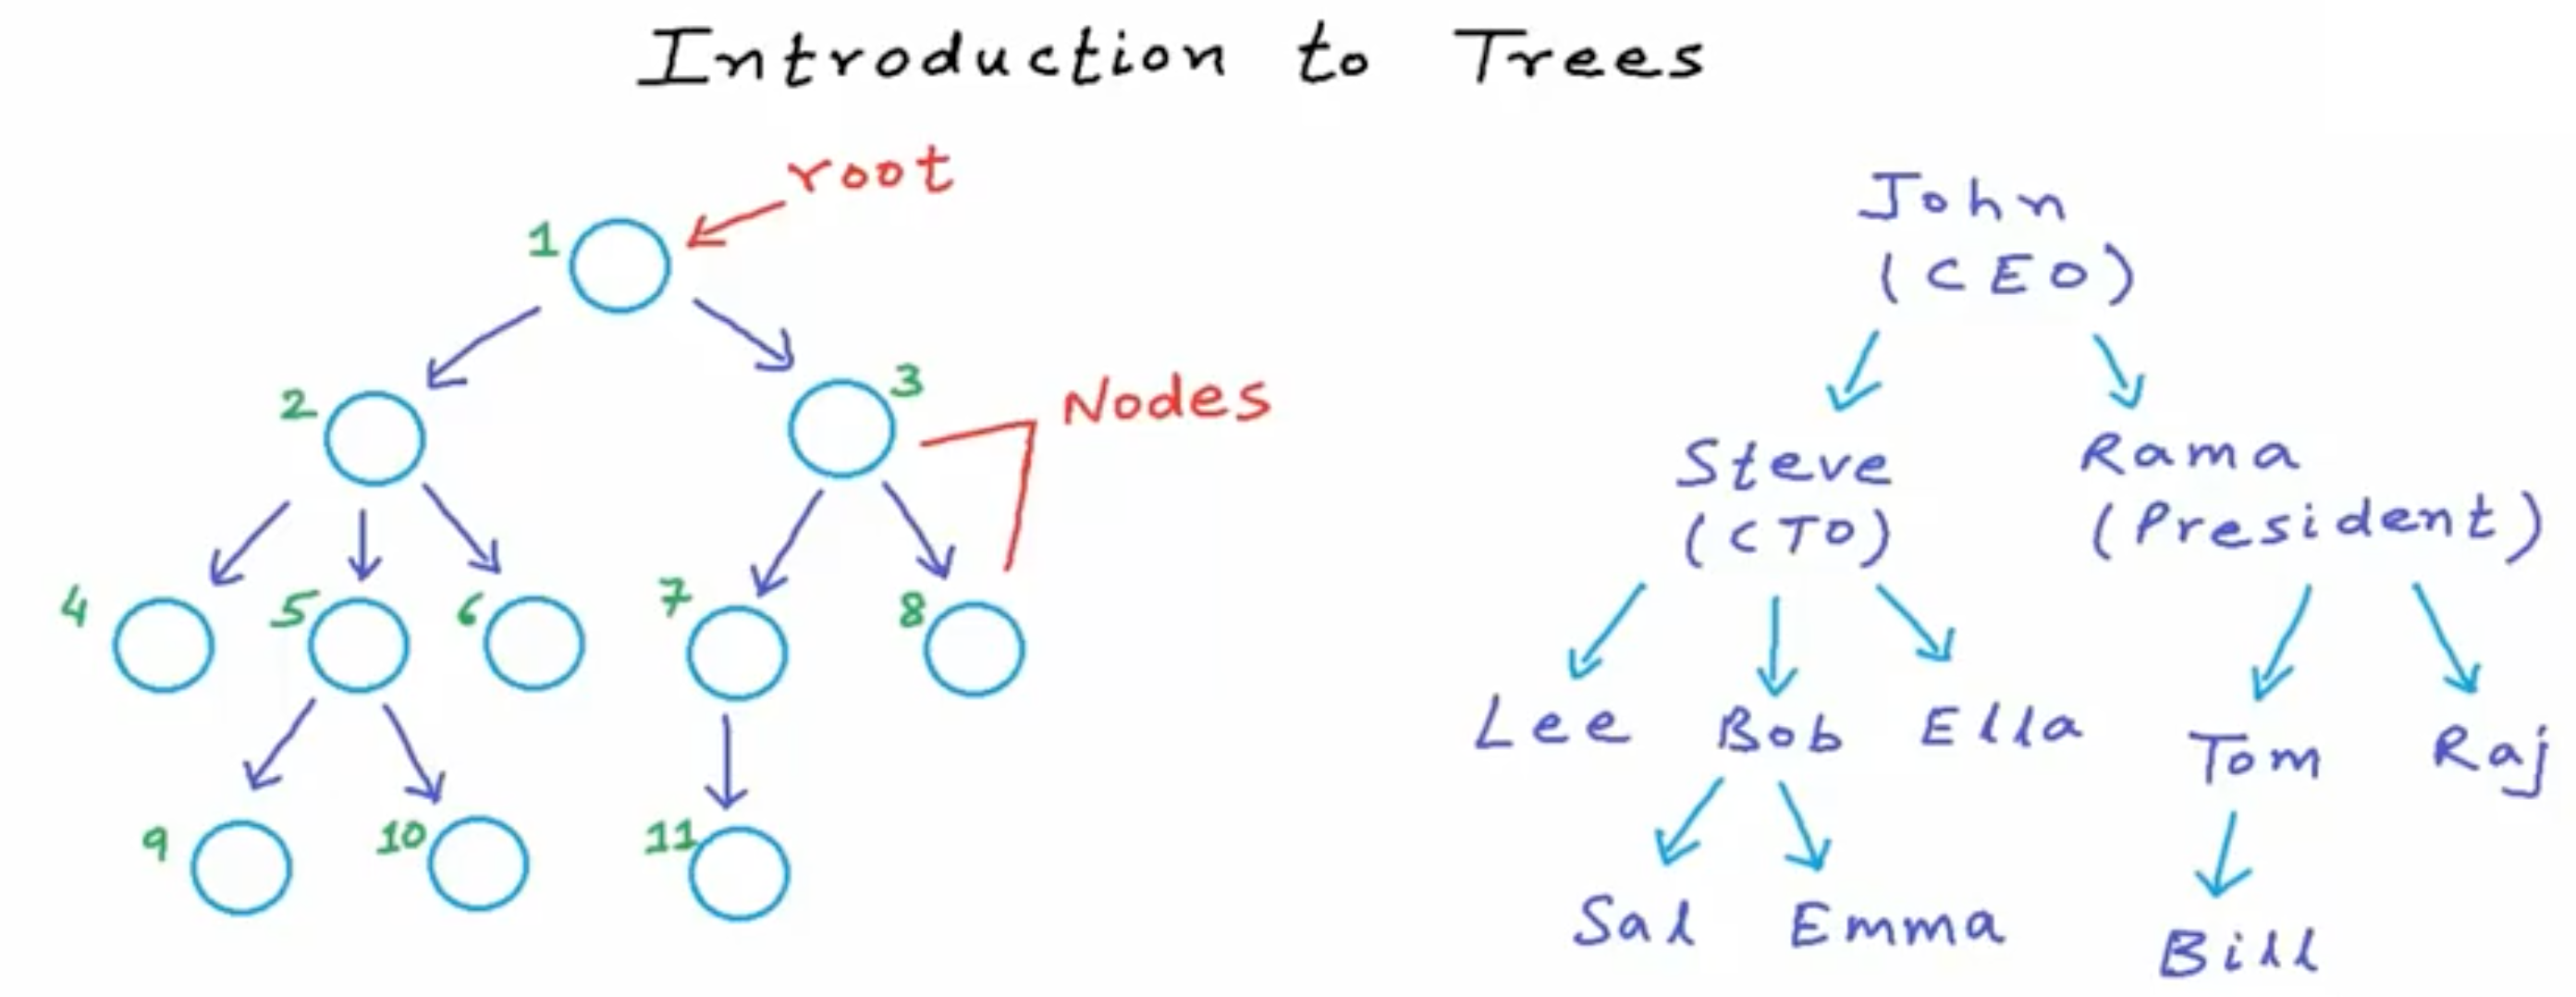 Introduction to Trees
root
1
2
3
Nodes
4
5
6
7
8
9
10
11
John
(CEO)
Steve
(CTO)
Rama
(President)
Lee
Bob
Ella
Tom
Raj
Sal
Emma
Bill